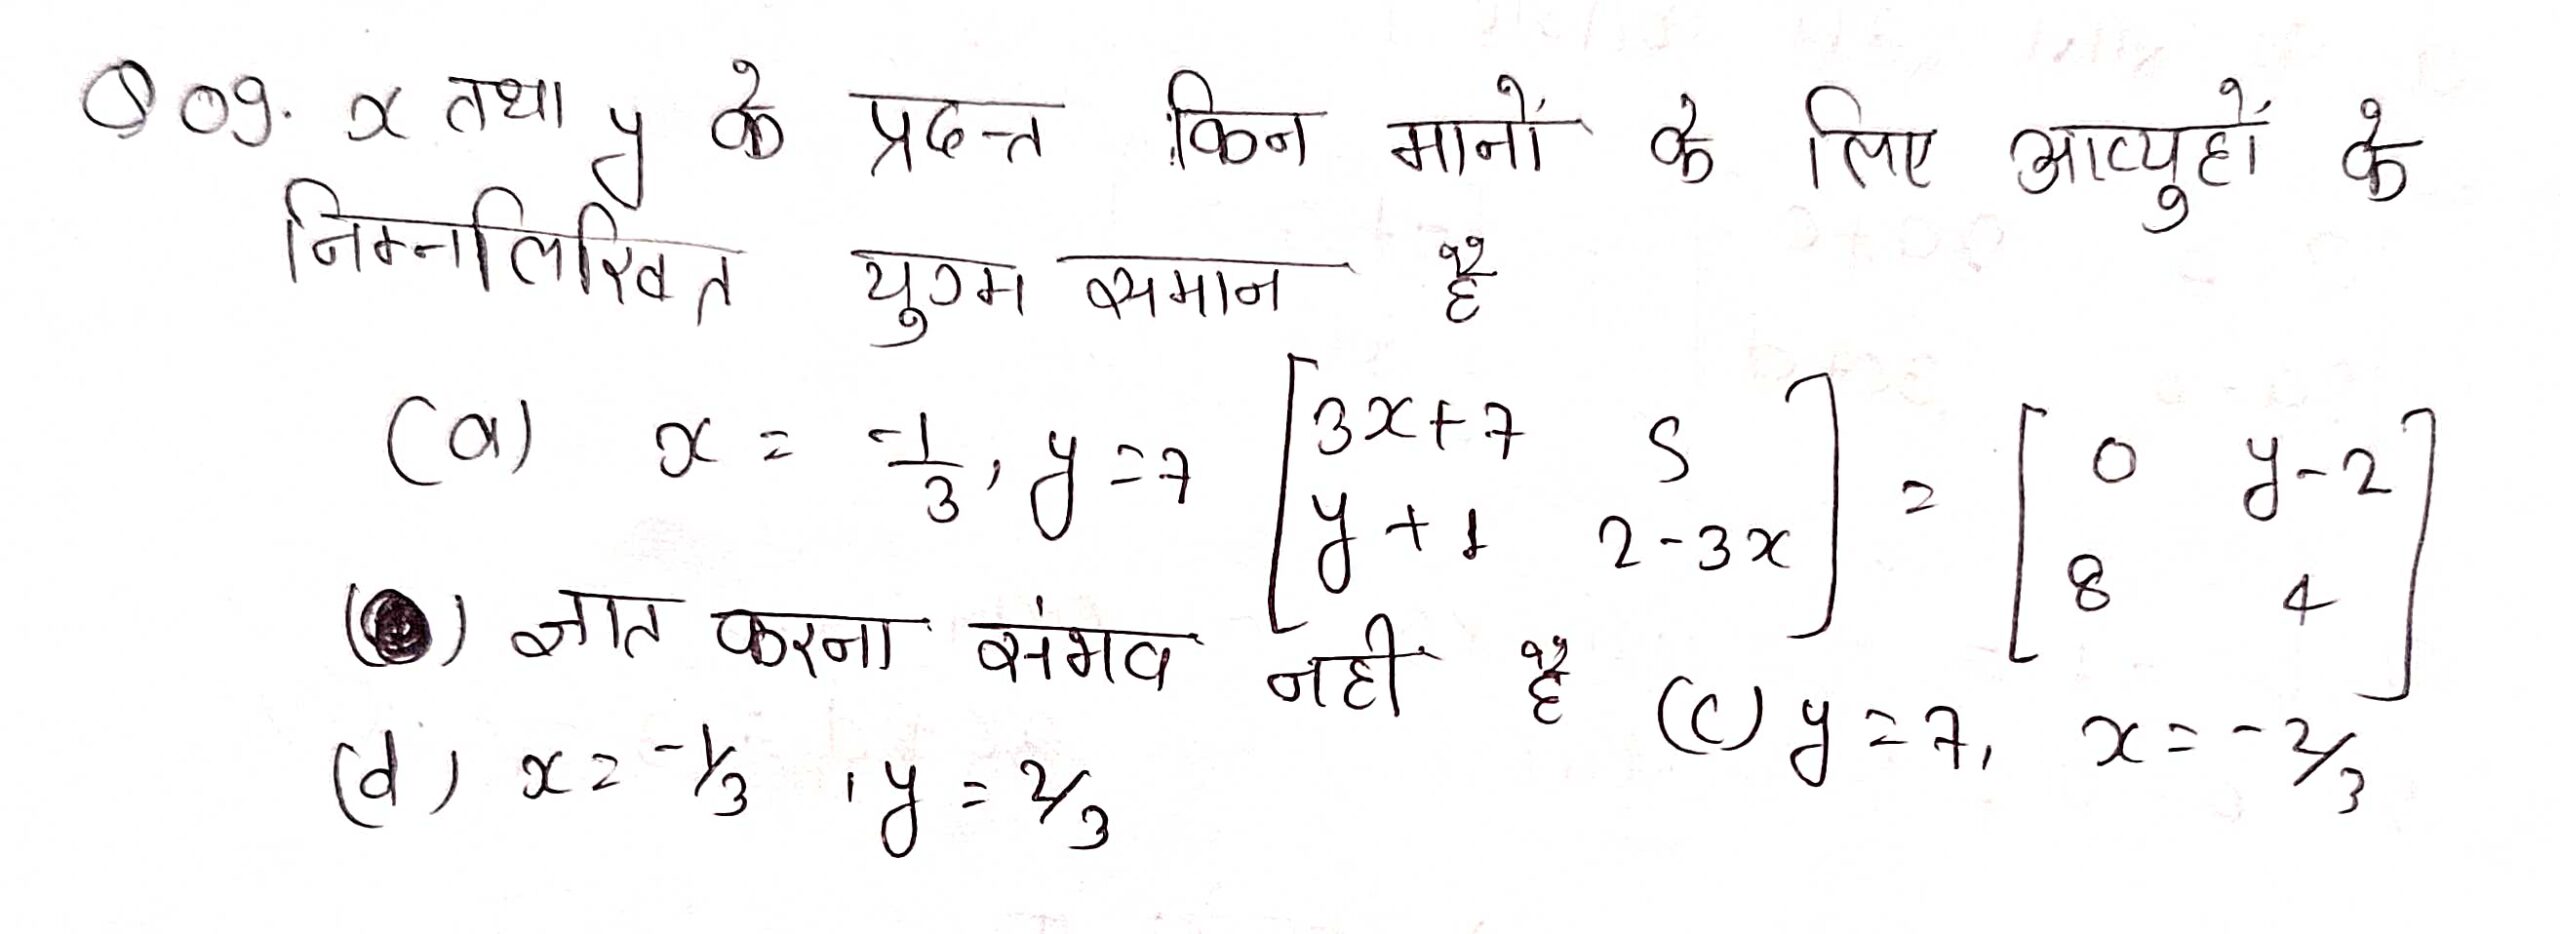 Q 09. x तथा y के प्रदत्त किन मानों के लिए आव्युहों के
निम्नलिखित युग्म समान है
(a) x = -1/3, y = 7 [3x+7 5 y+1 2-3x] = [0 y-2 8 4]
( ) ज्ञात करना संभव नही है (c) y = 7, x = -2/3
(d) x = -1/3, y = 2/3